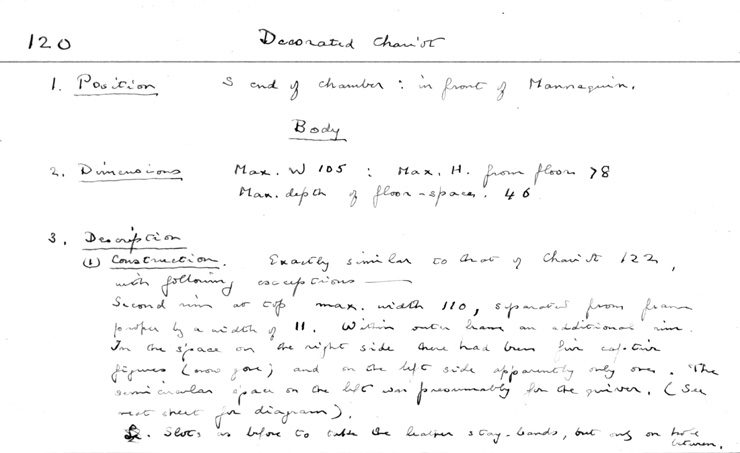 120 Decorated Chariot
1. Position S end of chamber : in front of Mannequin.
Body
2. Dimensions Max. W 105 : Max. H. from floor 78
Max. depth of floor-space. 46
3. Description
(1) Construction. Exactly similar to that of Chariot 122,
with following exceptions —
Second rim at top max. width 110, separated from frame
proper by a width of 11. Within outer frame an additional rim.
In the space on the right side there had been five captive
figures (now gone) and on the left side apparently only one. The
semicircular space on the left was presumably for the quiver. (See
next sheet for diagram).
Slots as before to take the leather stay-bands, but only on
between.